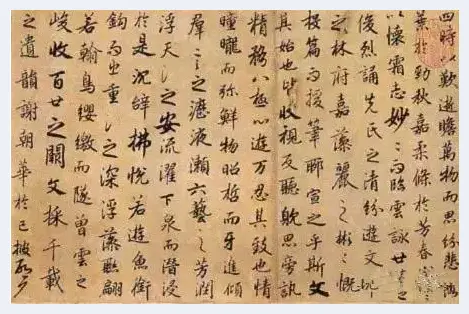 四時以歎逝瞻萬物而思紛悲落
葉於勁秋嘉柔條於芳春
以懷霜志妙〻而臨雲詠世之
俊烈誦先民之清紛遊文
之林府嘉藻麗之彬〻慨
投篇而援筆聊宣之乎斯文
其始也皆收視反聽耽思旁訊
精騖八極心遊万仞其致也情
曈曨而弥鮮物昭晢而互進傾
群言之瀝液漱六藝之芳潤
浮天淵之安流濯下泉而潛浸
於是沉辭怫悅若遊魚銜
鉤而出重淵之深浮藻聯翩
若翰鳥纓繳而墜曾雲之
峻收百世之闕文採千載
之遺韻謝朝華於已披啟夕